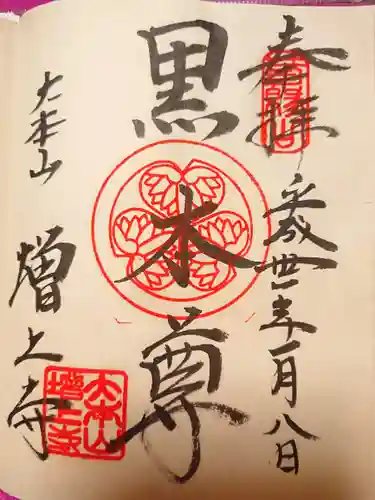 奉拝
平成卅一年一月八日
黒本尊
大本山
増上寺
大本山
増上寺